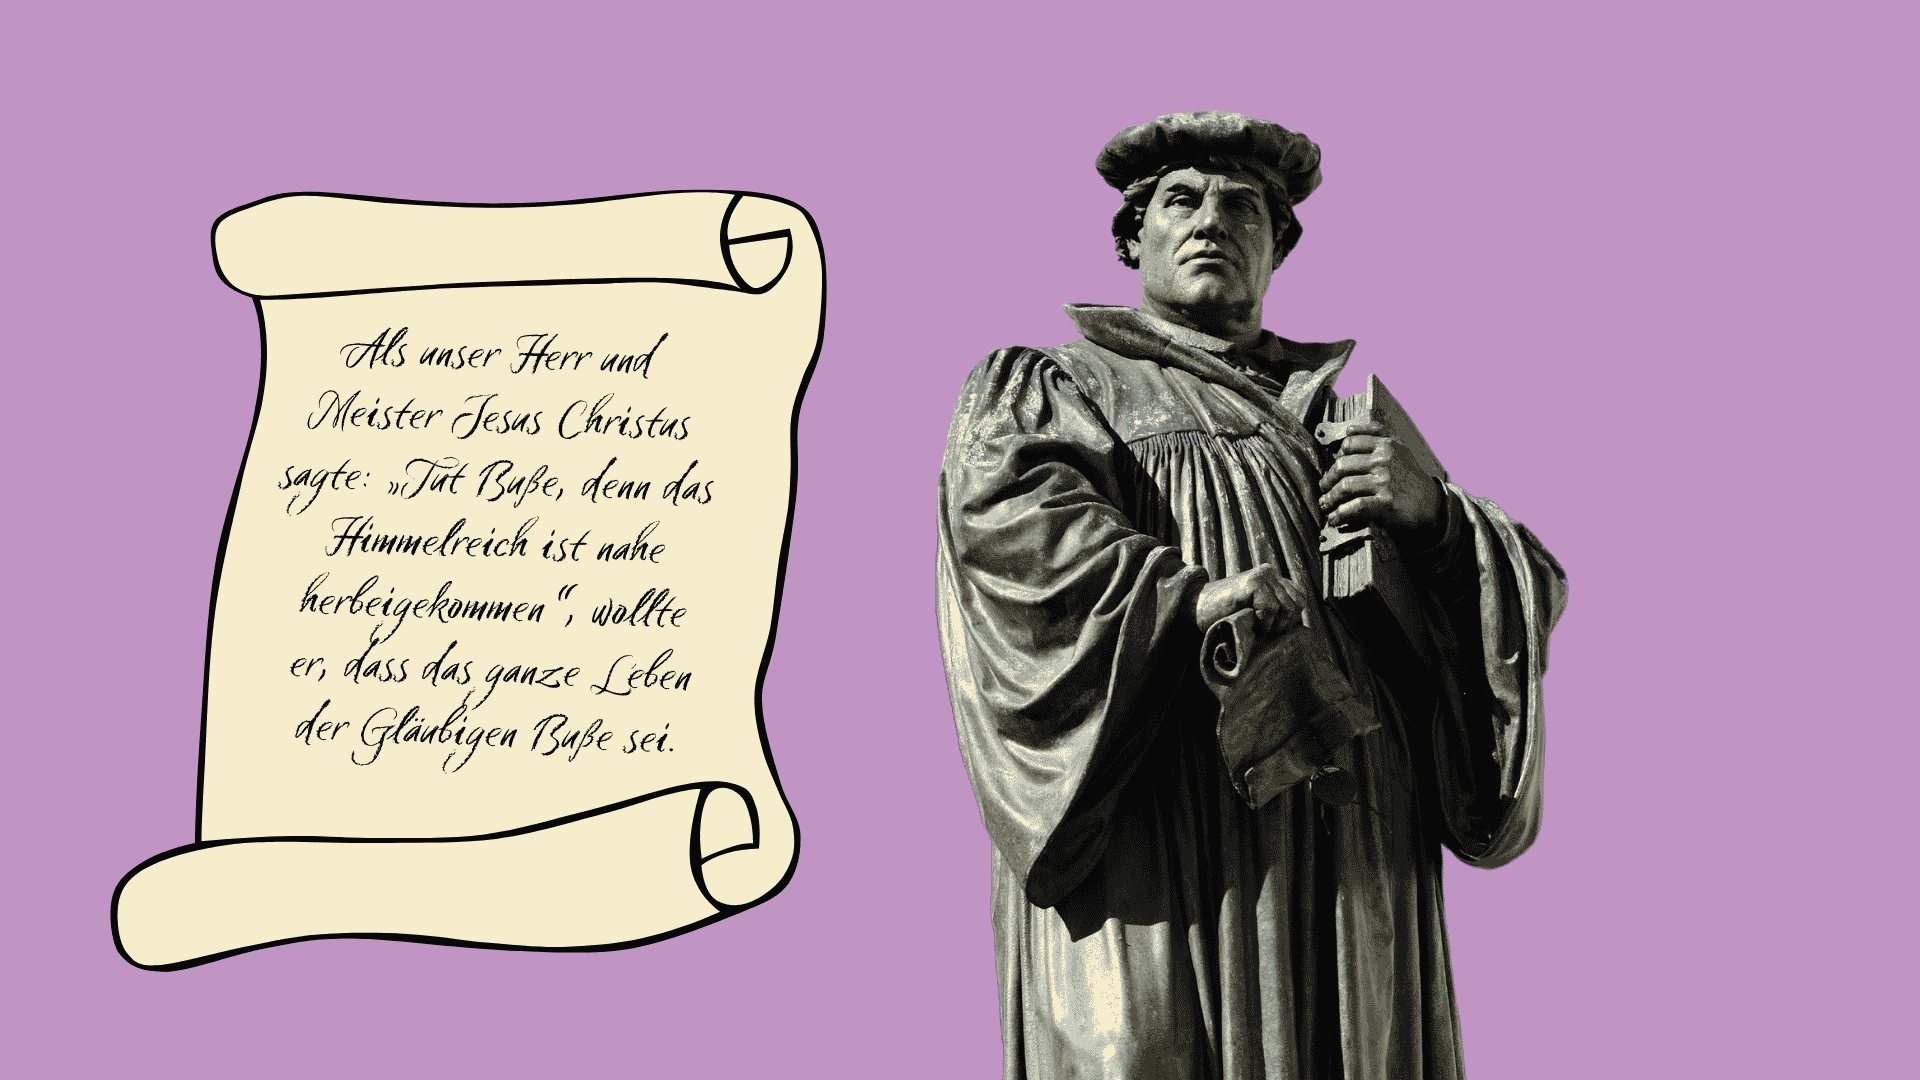 Als unser Herr und
Meister Jesus Christus
sagte: „Tut Buße, denn das
Himmelreich ist nahe
herbeigekommen“, wollte
er, dass das ganze Leben
der Gläubigen Buße sei.